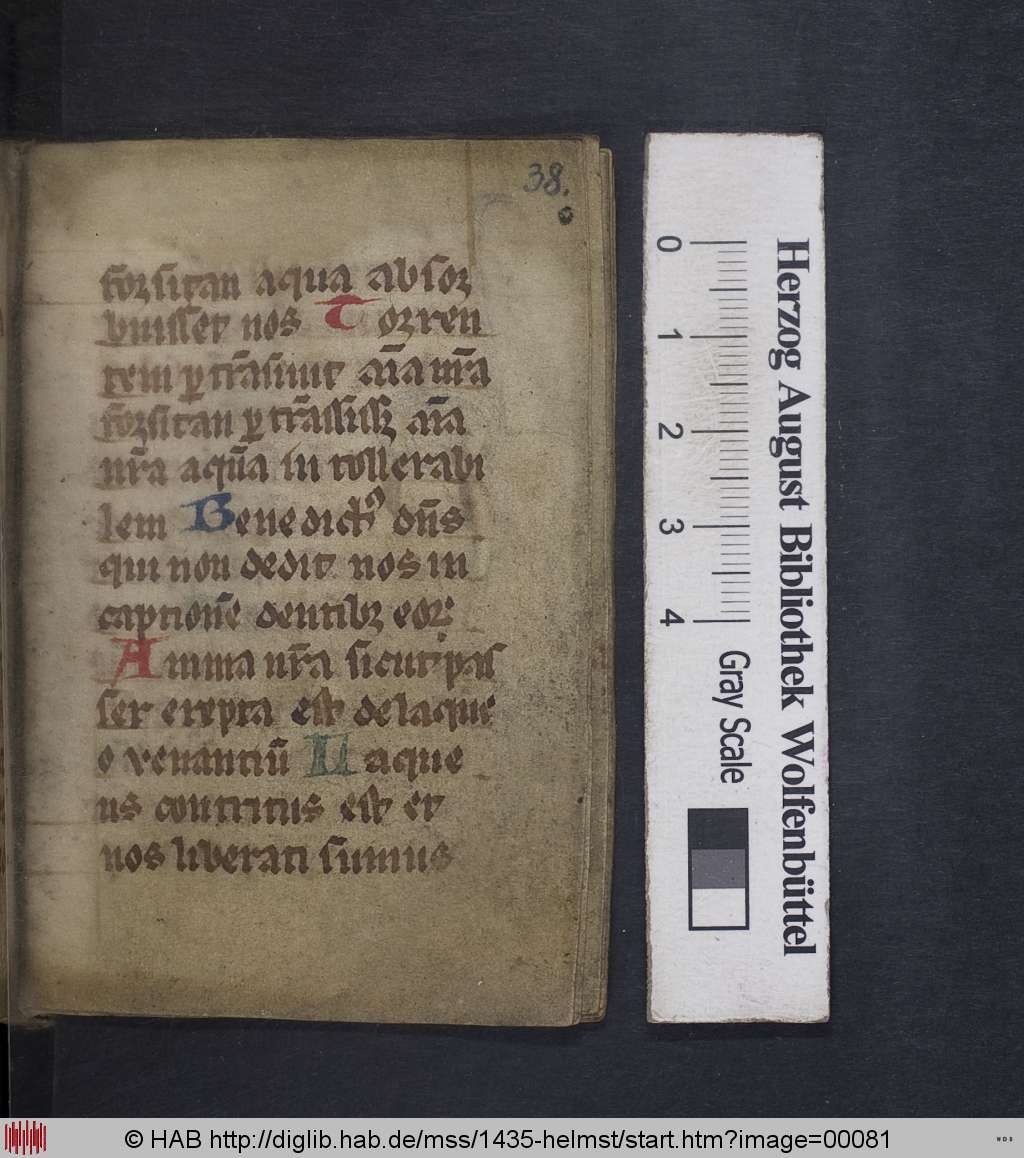 38.
forsitan aqua absor
buisset nos Torren
tem ꝑtrāsiuit aīa nr̄a
forsitan ꝑtrāssissꝫ aīa
nr̄a aquā in tollerabi
lem Benedictꝰ dn̄s
qui non dedit nos in
captionē dentibꝫ eoꝝ
Anima nr̄a sicut pas
ser erepta est de laque
o venantiū Laque
us contritus est et
nos liberati sumus
0 1 2 3 4
Gray Scale
Herzog August Bibliothek Wolfenbüttel
© HAB http://diglib.hab.de/mss/1435-helmst/start.htm?image=00081